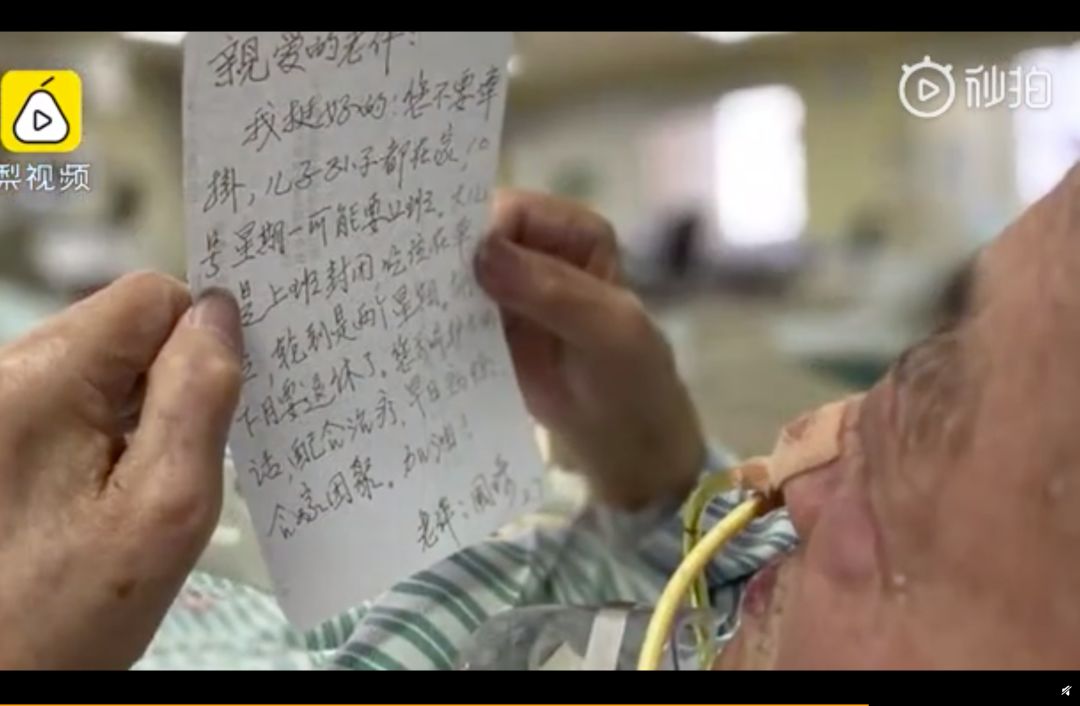 親爱的老伴:
我挺好的!您不要牵
掛,儿子孙子都在家,10
号星期一可能要上班。
是上班封闭吃住在单
轮到是两个星期。
下月要退休了。您
话,配合治疗,早日
合家团聚。加油!
老伴:
梨视频
秒拍